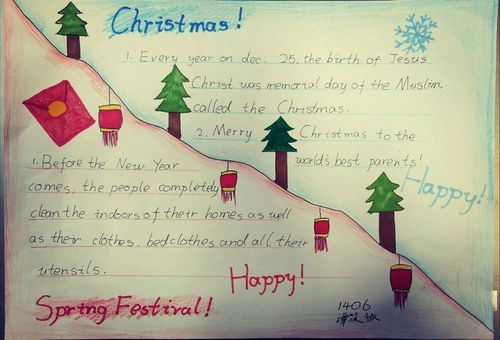 Christmas!
1. Every year on dec. 25. the birth of Jesus
Christ was memorial day of the Muslim
called the Christmas.
2. Merry Christmas to the
world's best parents!
Happy!
1. Before the New Year
comes, the people completely
clean the indoors of their homes as well
as their clothes, bedclothes and all their
utensils.
Happy!
Spring Festival!
1406